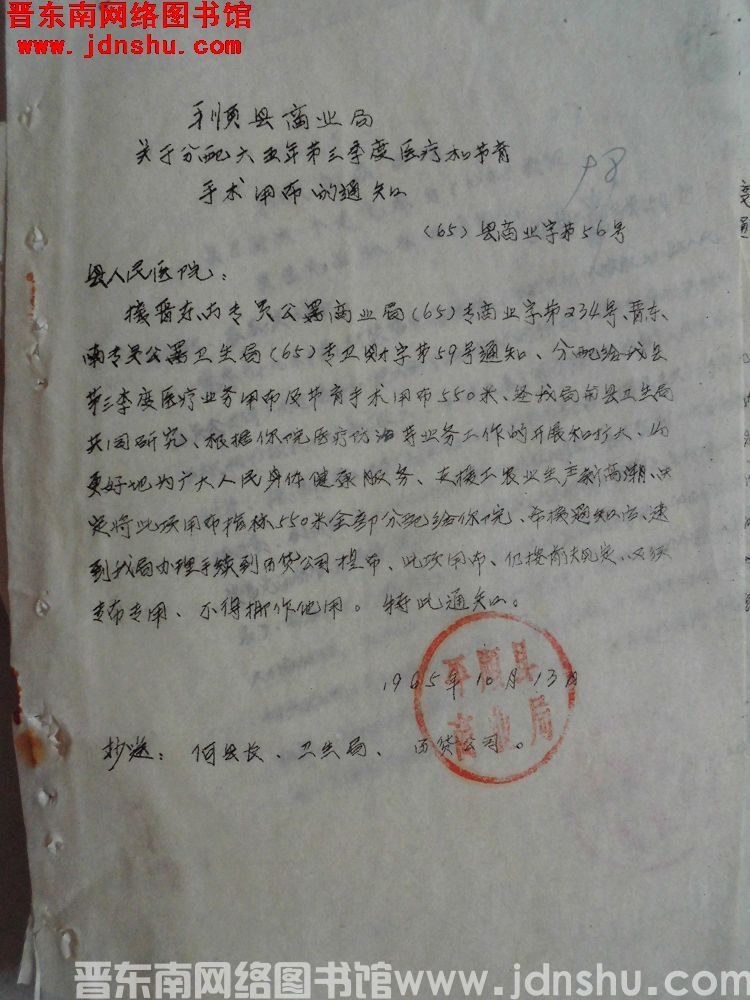 晋东南网络图书馆
www.jdnshu.com
平顺县商业局
关于分配六五年第三季度医疗和节育
手术用布的通知
98
(65)县商业字第56号
县人民医院：
接晋东南专员公署商业局(65)专商业字第234号、晋东
南专员公署卫生局(65)专卫财字第59号通知、分配给我县
第三季度医疗业务用布及节育手术用布550米、经我局与县卫生局
共同研究、根据你院医疗防治等业务工作的开展和扩大、为
更好地为广大人民身体健康服务、支援工农业生产新高潮、决
定将此项用布指标550米全部分配给你院、希接通知后、速
到我局办理手续到百货公司提布、此项用布、仍按前规定、必须
专布专用、不得挪作他用。特此通知。
1965年10月13日
平顺县
商业局
抄送：何县长、卫生局、百货公司。
晋东南网络图书馆www.jdnshu.com